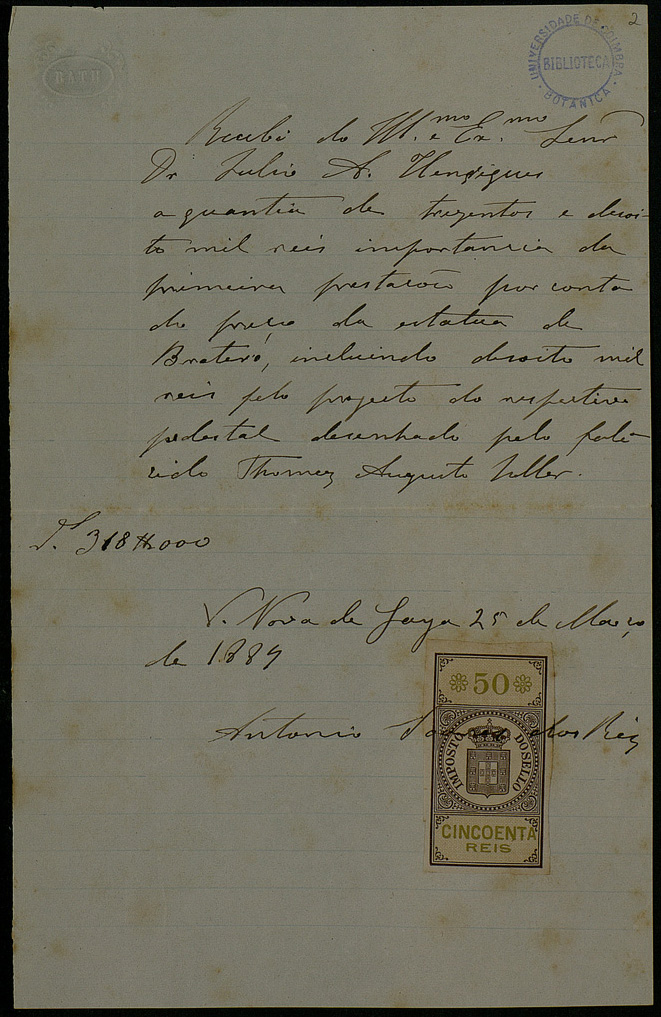 2
BATH
UNIVERSIDADE DE COIMBRA
BIBLIOTECA
BOTANICA
Recebi do Ill.mo e Ex.mo Senr
Dr Julio A. Henriques
a quantia de trezentos e desoi-
to mil reis importancia da
primeira prestação por conta
do preço da estatua de
Brotero, incluindo desoito mil
reis pelo projecto do respectivo
pedestal desenhado pelo fale-
cido Thomaz Augusto Soller.
318$000
V. Nova de Gaya 25 de Março
de 1889
Antonio Soares dos Reis
50
IMPOSTO DO SELLO
CINCOENTA
REIS